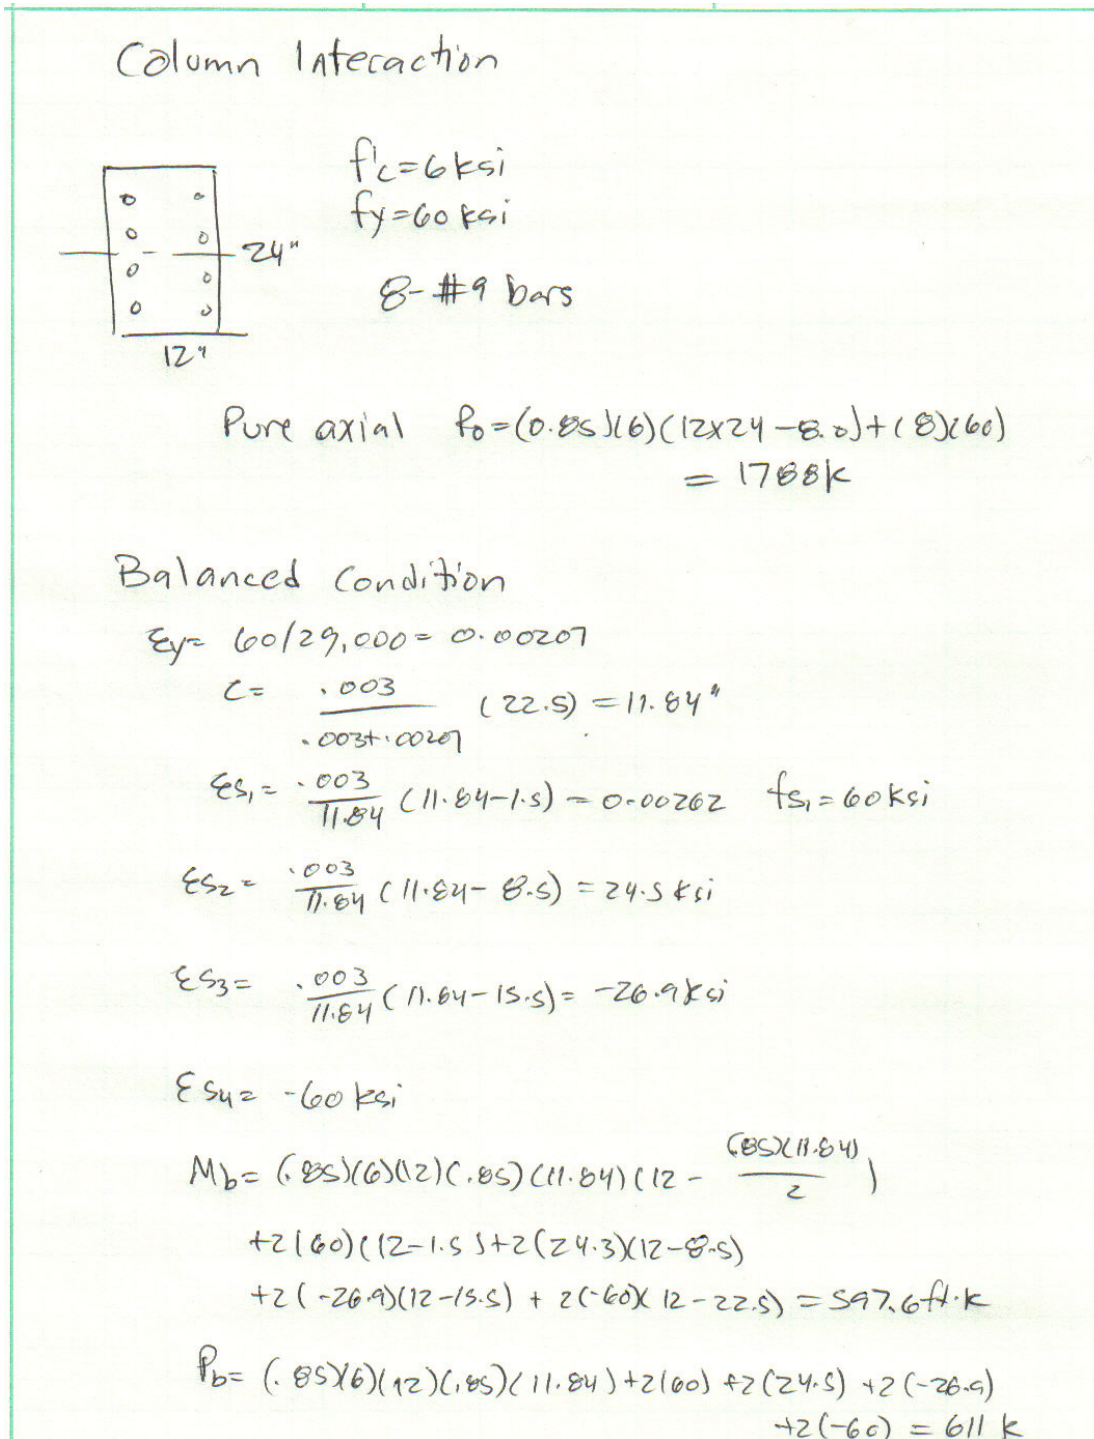 Column Interaction
f'c=6ksi
fy=60 ksi
24"
8-#9 bars
12"
Pure axial Po=(0.85)(6)(12x24-8.0)+(8)(60)
= 1788k
Balanced Condition
εy= 60/29,000= 0.00207
c= .003/.003+.00207 (22.5) = 11.84"
εs1= .003/11.84 (11.84-1.5) = 0.00262 fs1=60ksi
εs2= .003/11.84 (11.84-8.5) = 24.5 ksi
εs3= .003/11.84 (11.84-15.5)= -26.9ksi
εs4= -60 ksi
Mb= (.85)(6)(12)(.85)(11.84)(12- (.85)(11.84)/2)
+2(60)(12-1.5)+2(24.3)(12-8.5)
+2(-26.9)(12-15.5) + 2(-60)(12-22.5) = 597.6ft·k
Pb= (.85)(6)(12)(.85)(11.84)+2(60)+2(24.5)+2(-26.9)
+2(-60) = 611 k